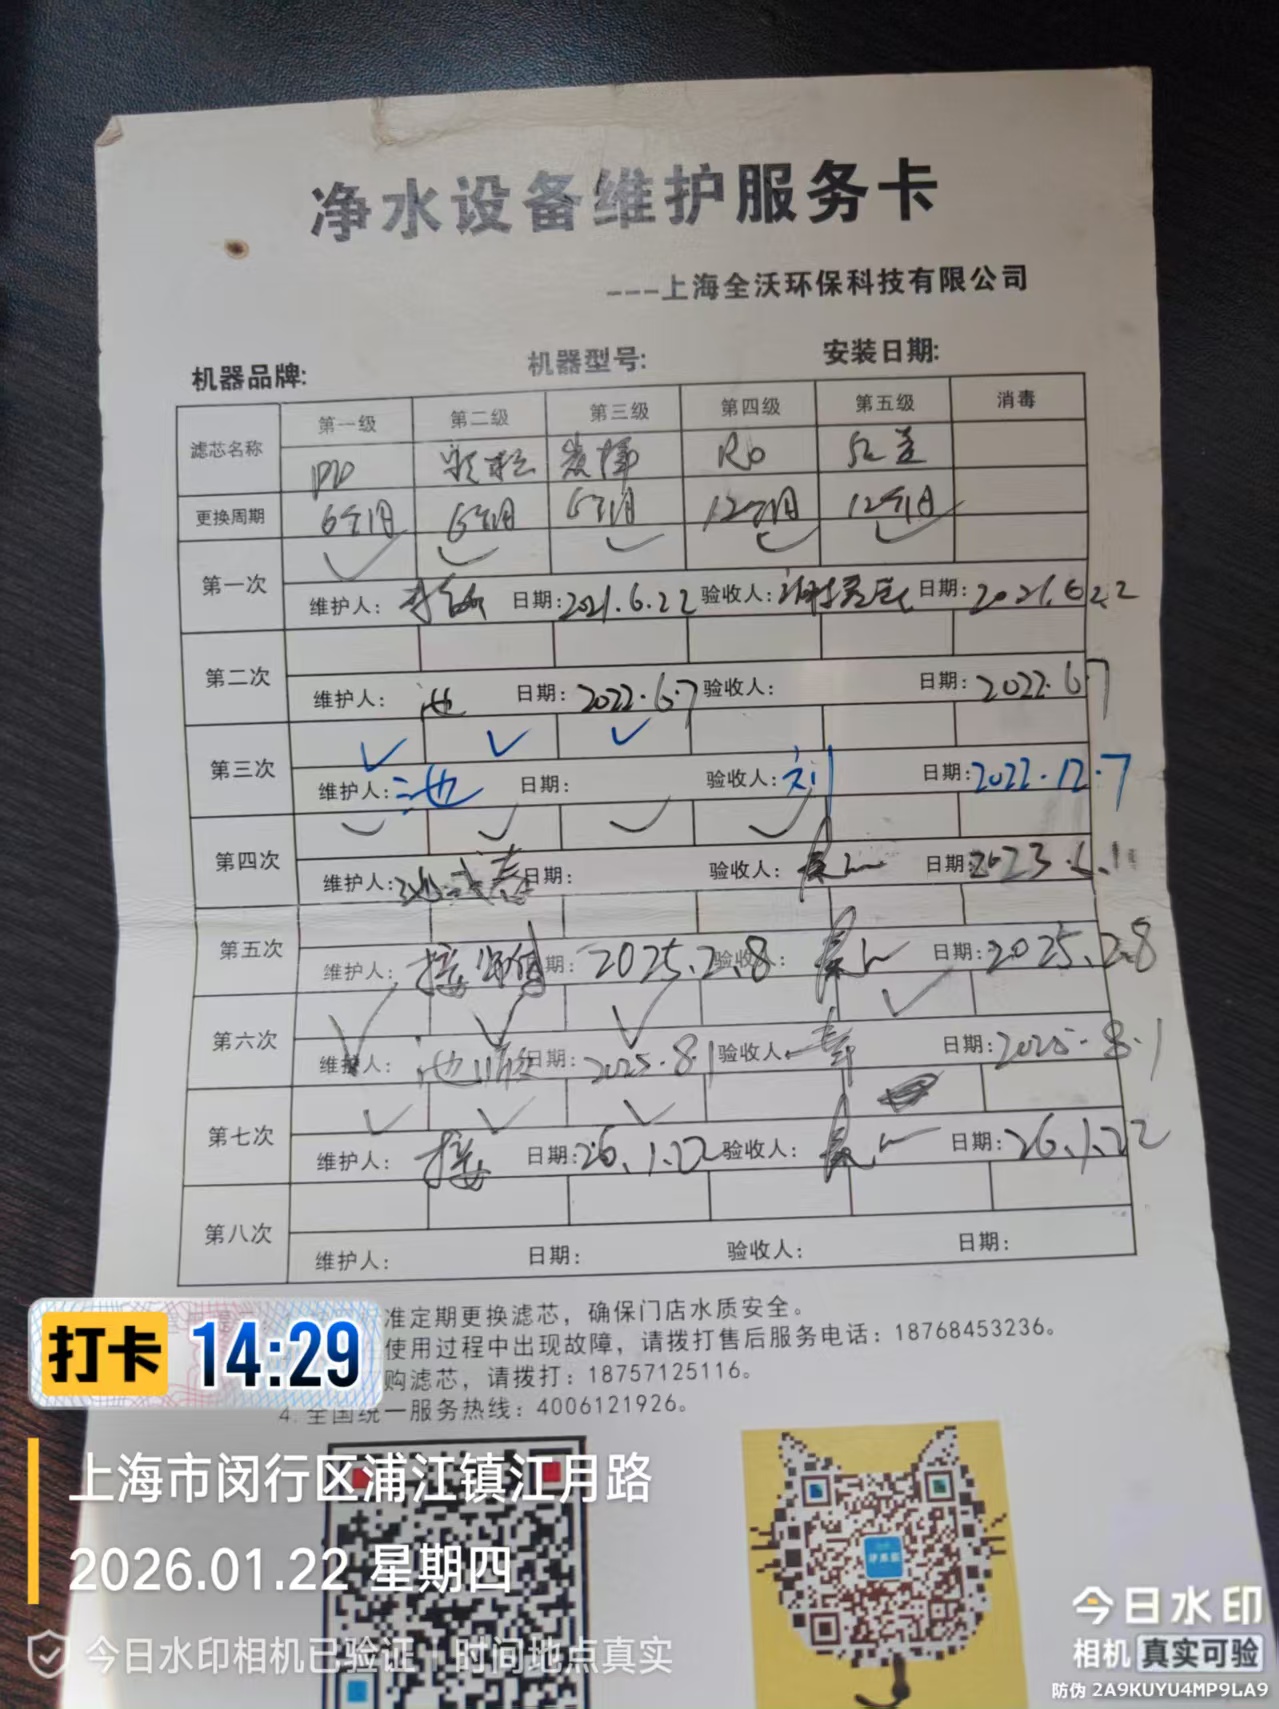 净水设备维护服务卡
---上海全沃环保科技有限公司
机器品牌: 机器型号: 安装日期:
滤芯名称 第一级 第二级 第三级 第四级 第五级 消毒
PP 颗粒 RO
更换周期 6个月 6个月 6个月 12个月 12个月
第一次 ✓ ✓ ✓ ✓ ✓
维护人: 日期:2021.6.22 验收人: 日期:2021.6.22
第二次
维护人: 池 日期:2022.6.7 验收人: 日期:2022.6.7
第三次 ✓ ✓ ✓
维护人:池 日期: 验收人:刘 日期:2022.12.7
第四次 ✓ ✓ ✓ ✓
维护人: 日期: 验收人: 日期:2023.6.11
第五次
维护人: 期: 2025.2.8 验收人: 日期:2025.2.8
第六次 ✓ ✓ ✓ ✓
维护人: 日期:2025.8.1 验收人: 日期:2025.8.1
第七次 ✓ ✓ ✓
维护人: 日期:26.1.22 验收人: 日期:26.1.22
第八次
维护人: 日期: 验收人: 日期:
准定期更换滤芯，确保门店水质安全。
使用过程中出现故障，请拨打售后服务电话：18768453236。
购滤芯，请拨打：18757125116。
4. 全国统一服务热线：4006121926。
打卡 14:29
上海市闵行区浦江镇江月路
2026.01.22 星期四
今日水印相机已验证 时间地点真实
今日水印
相机 真实可验
防伪 2A9KUYU4MP9LA9